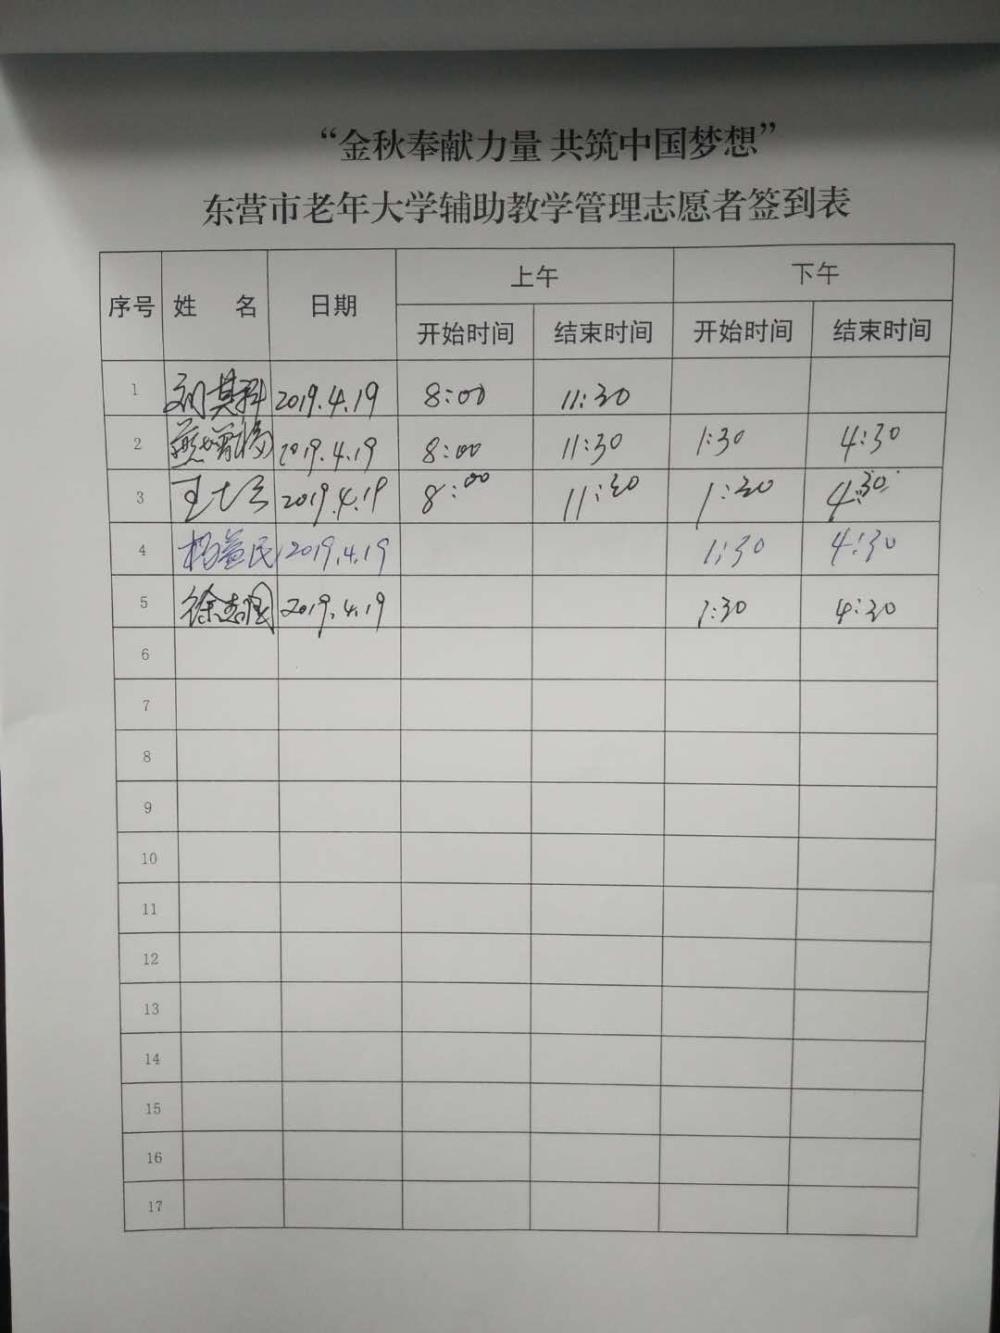 “金秋奉献力量 共筑中国梦想”
东营市老年大学辅助教学管理志愿者签到表
序号 姓 名 日期 上午 下午
开始时间 结束时间 开始时间 结束时间
1 刘其科 2019.4.19 8:00 11:30
2 2019.4.19 8:00 11:30 1:30 4:30
3 2019.4.19 8:00 11:30 1:30 4:30
4 杨益民 2019.4.19 1:30 4:30
5 徐志国 2019.4.19 1:30 4:30
6
7
8
9
10
11
12
13
14
15
16
17